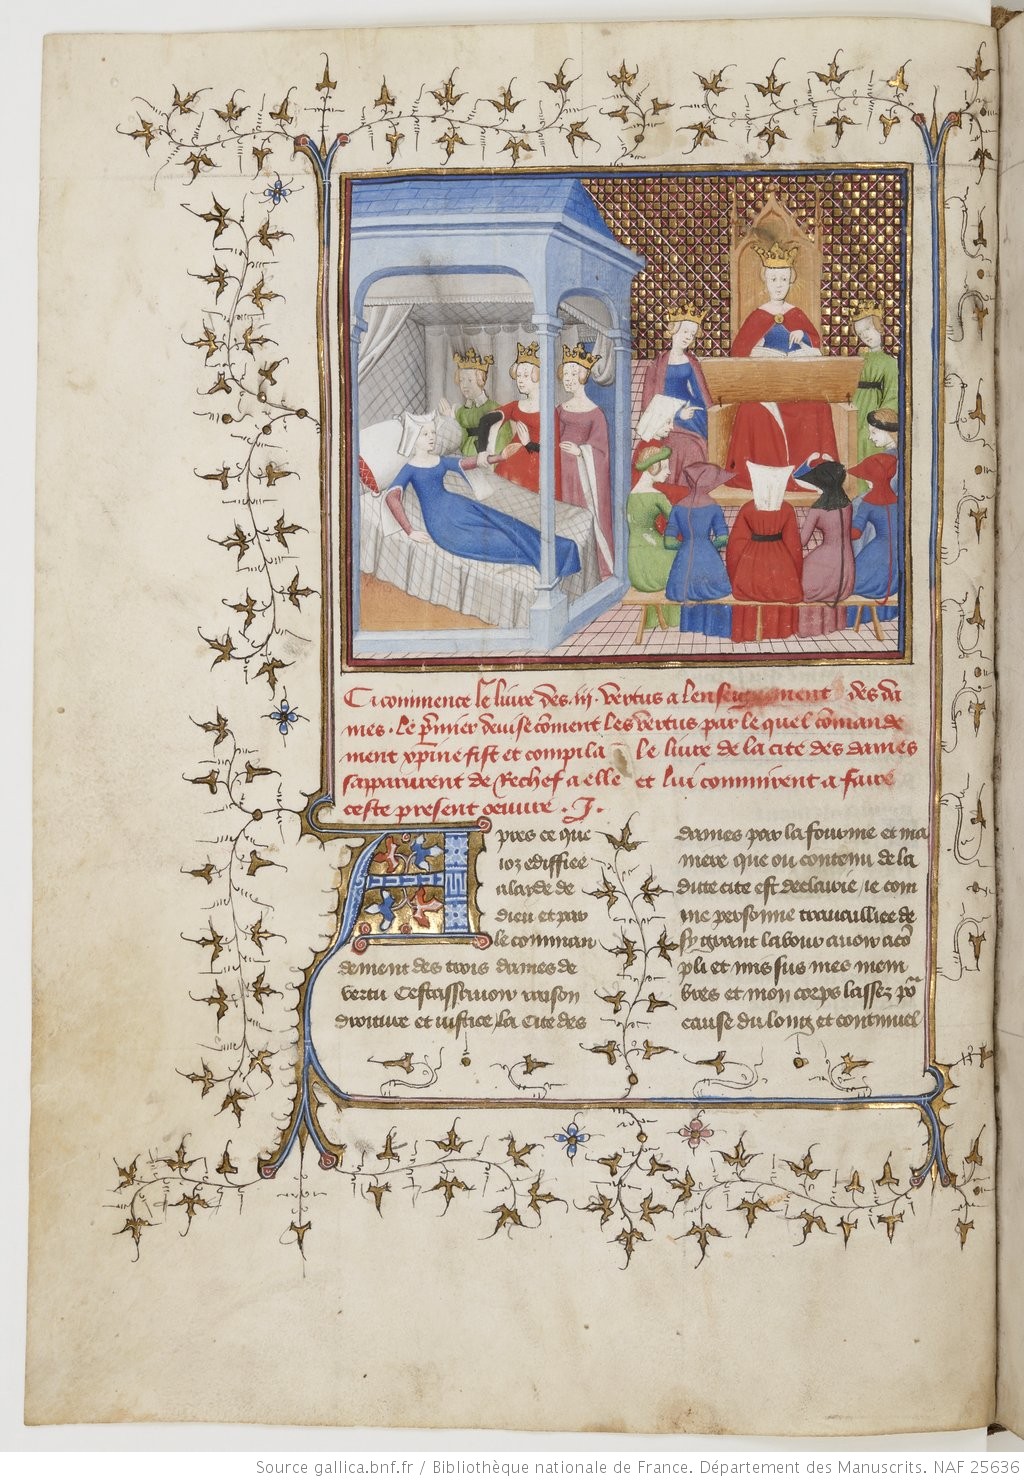 Ci commence le livre des .iij. vertus a lenseignement des da
mes . Le pmier devise coment les vertus par le quel comande
ment xpine fist et compila le livre de la cite des dames
sapparurent de rechef a elle et lui commirent a faire
ceste present oeuvre . J .
Apres ce que
ioz ediffiee
a laide de
dieu et par
le comman
dement des trois dames de
vertu Cestassavoir raison
droiture et iustice / la Cite des
dames par la fourme et ma
niere que ou contenu de la
dicte cite est declairie / ie com
me personne travailliee de
sy grant labour avoir aco
pli et mis sus mes mem
bres et mon corps lassez po
cause du long et continuel
Source gallica.bnf.fr / Bibliothèque nationale de France. Département des Manuscrits. NAF 25636